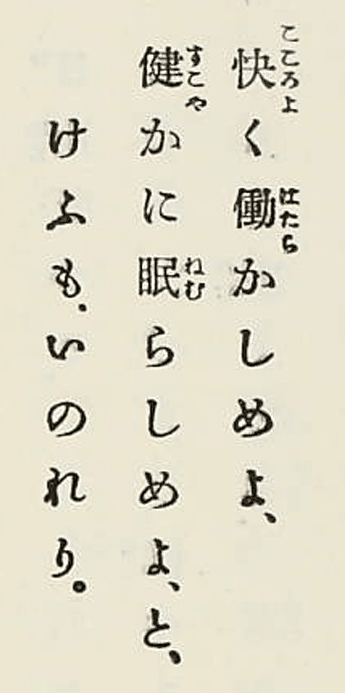 快く働かしめよ、
健かに眠らしめよ、と、
けふも、いのれり。